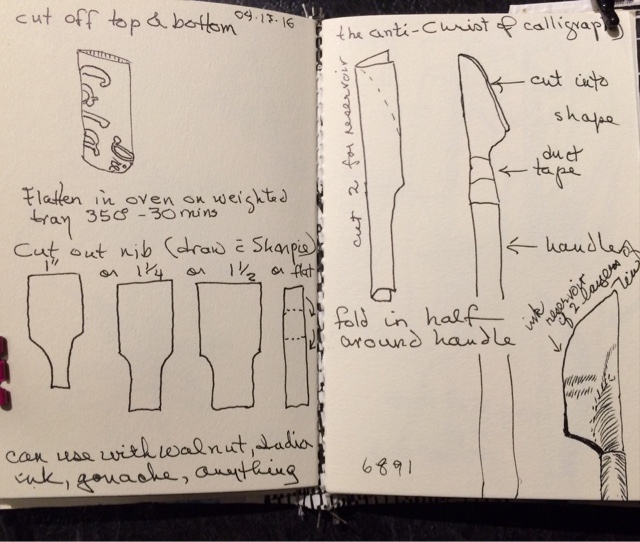 cut off top & bottom
04.17.16
Flatten in oven on weighted
tray 350° - 30 mins
Cut out nib (draw c̄ Sharpie)
1" or 1 1/4 or 1 1/2 or flat
can use with walnut, India
ink, gouache, anything
the anti-Christ of calligraphy
cut 2 for reservoir
cut into
shape
duct
tape
handle
ink
reservoir
of 2 layers
fold in half
around handle
6891